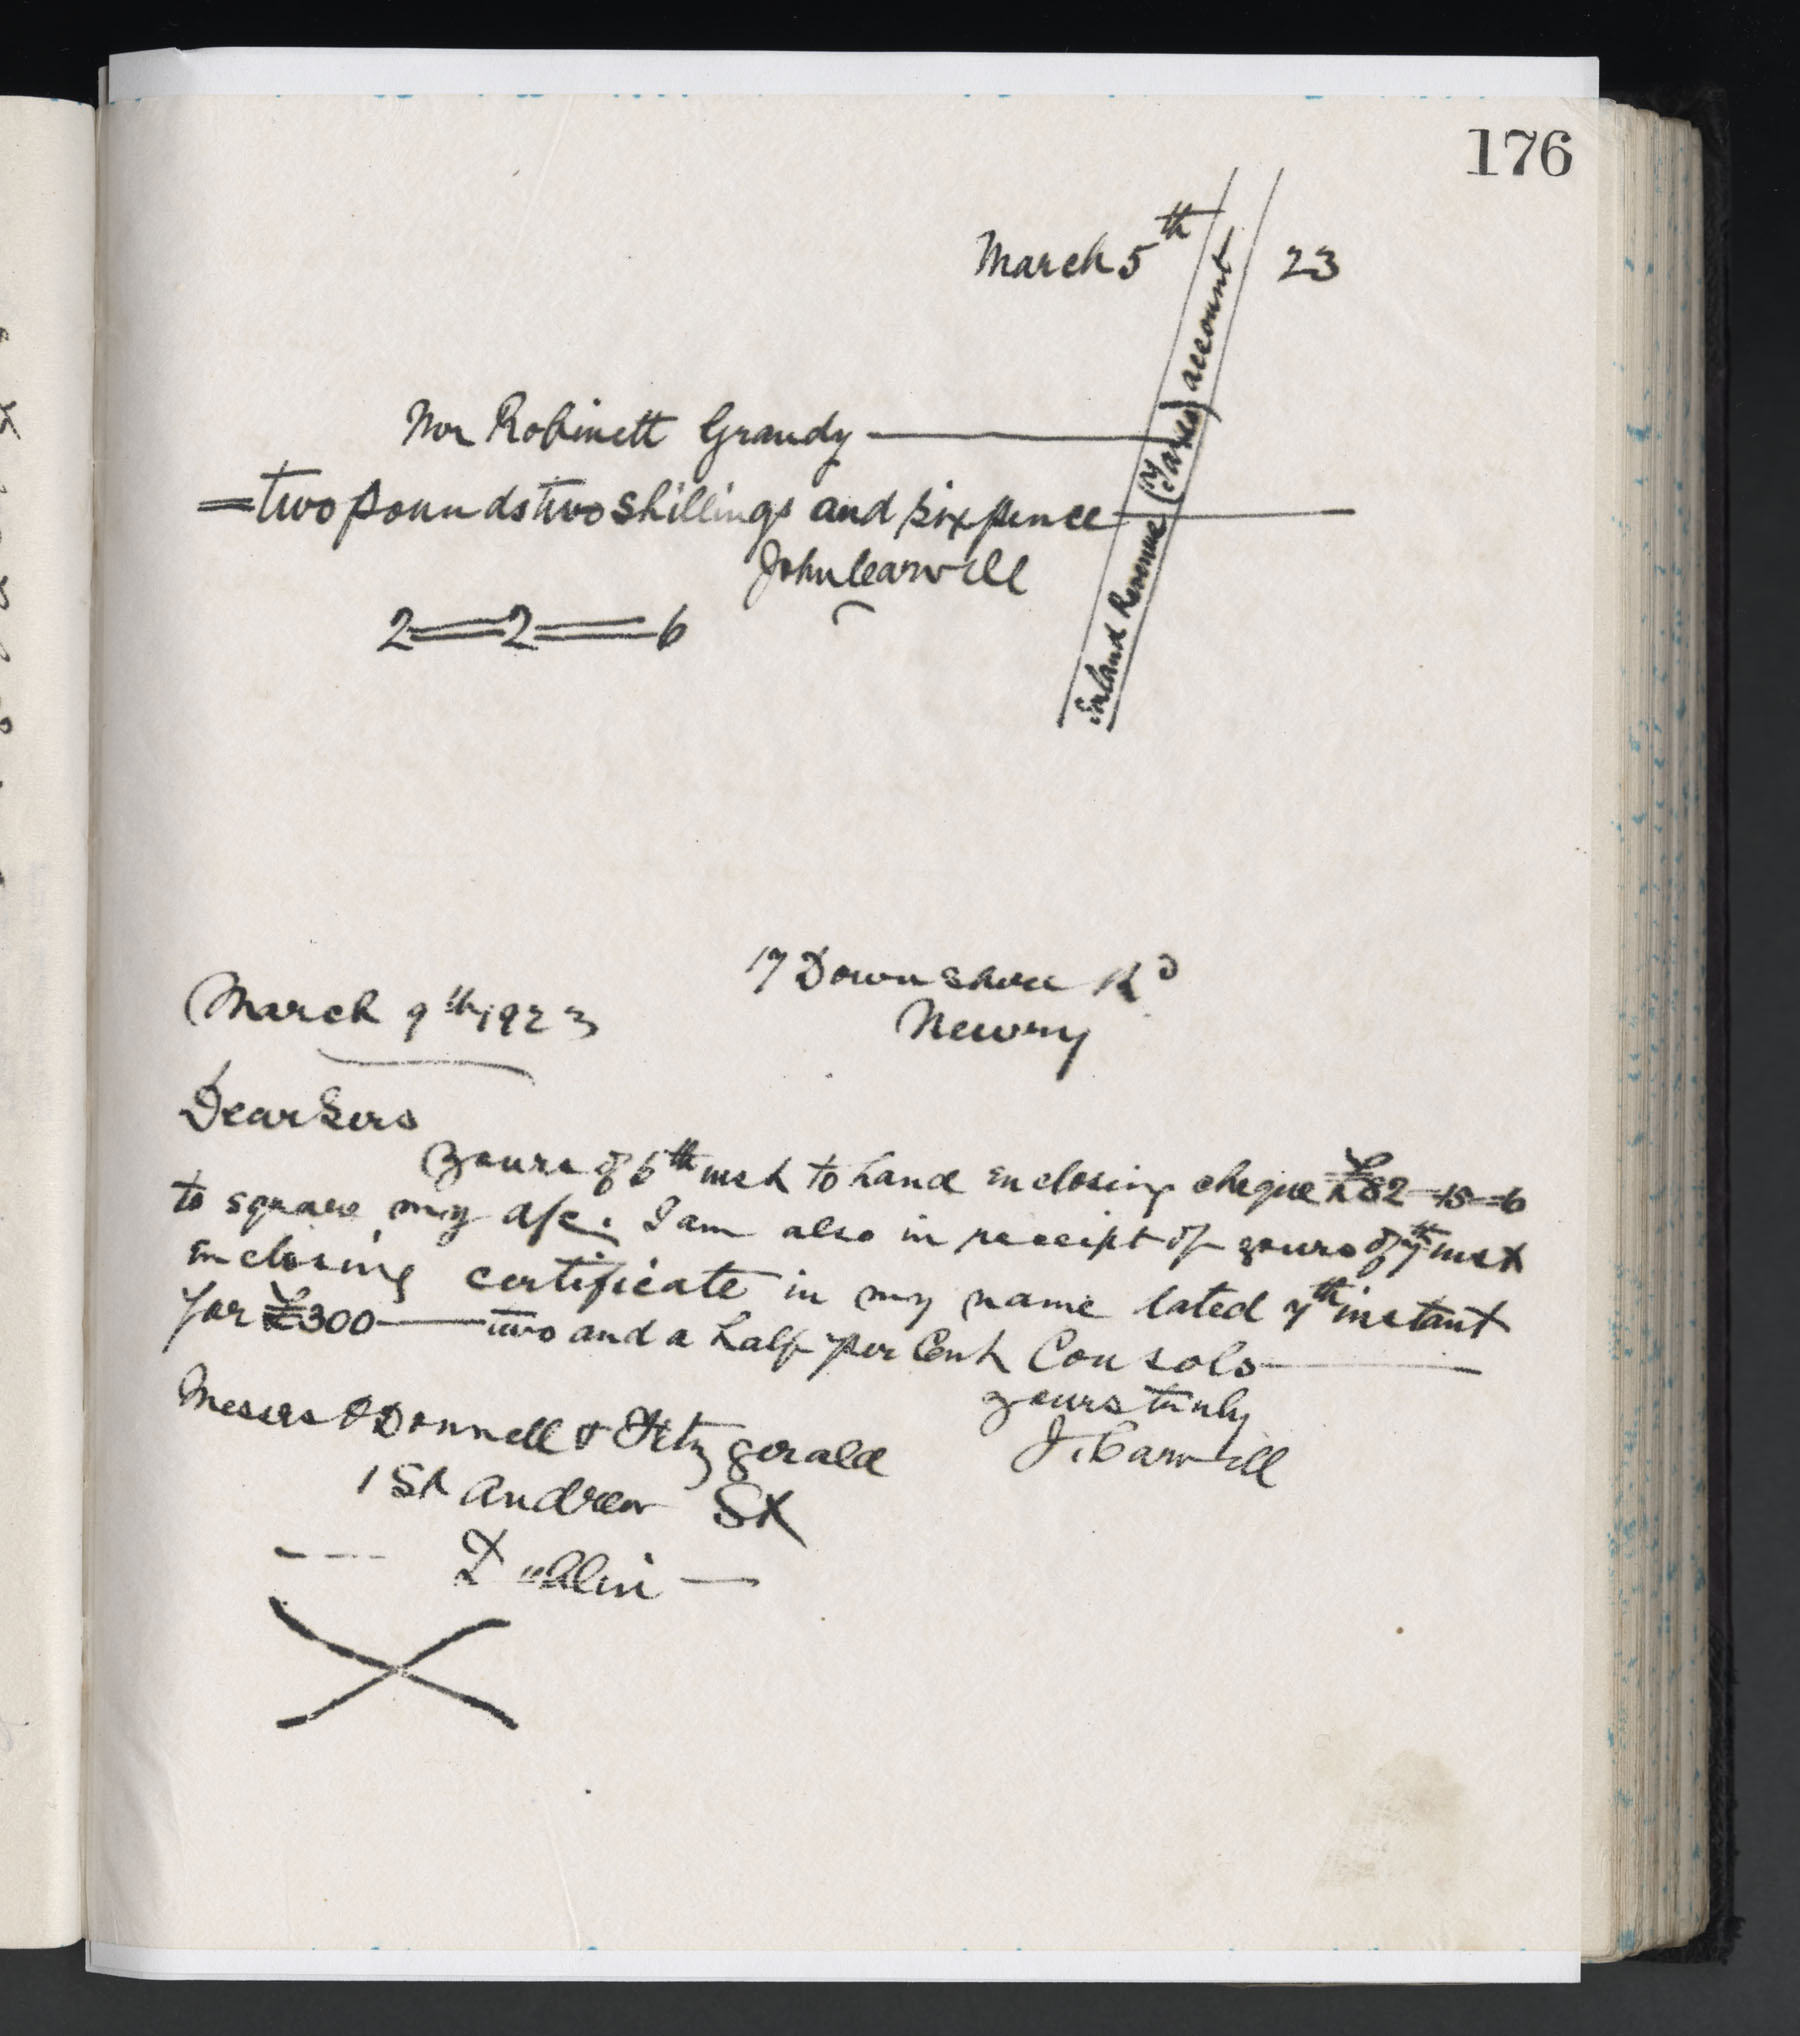 176
March 5th 23
Inland Revenue (Taxes) account
Mr Robinett Grandy
= two pounds two shillings and sixpence
John Carvill
2==2==6
17 Downshire Rd
March 9th, 1923
Newry
Dear Sirs
Yours of 5th inst to hand enclosing cheque £82-15-6
to square my a/c. I am also in receipt of yours of 7th inst
enclosing certificate in my name dated 7th instant
for £300—two and a half per Cent Consols
yours truly
Messrs O'Donnell & Fitzgerald
J. Carvill
1 St Andrew St
— Dublin —